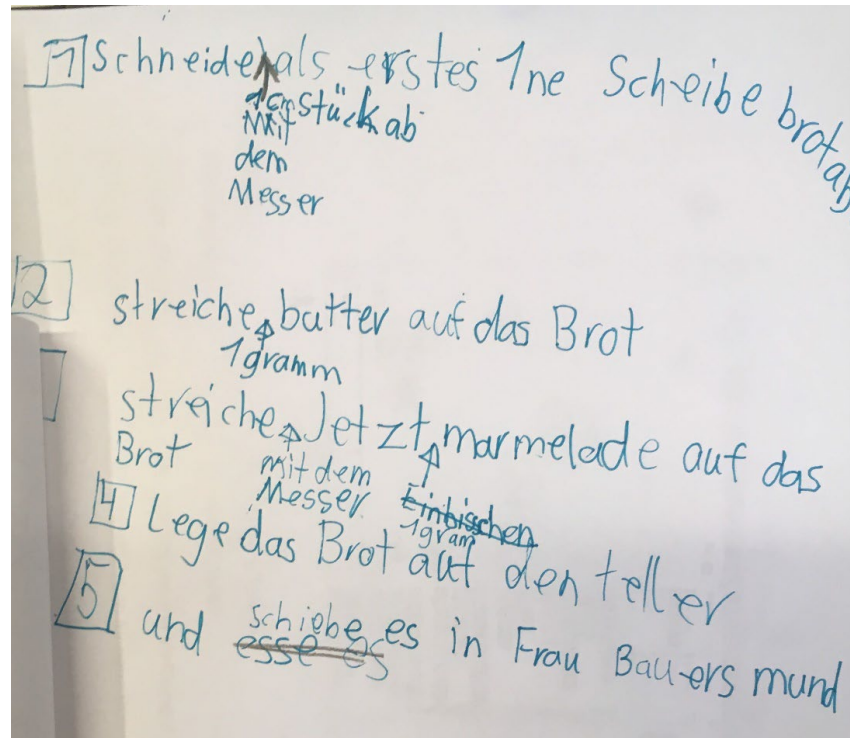 1 Schneide als erstes 1ne Scheibe brot ab
Stück ab
Mit
dem
Messer
2 streiche butter auf das Brot
1gramm
streiche Jetzt marmelade auf das
Brot
mit dem
Messer
Einbischen
1gram
4 Lege das Brot auf den teller
5 und schiebe es in Frau Bauers mund
esse es